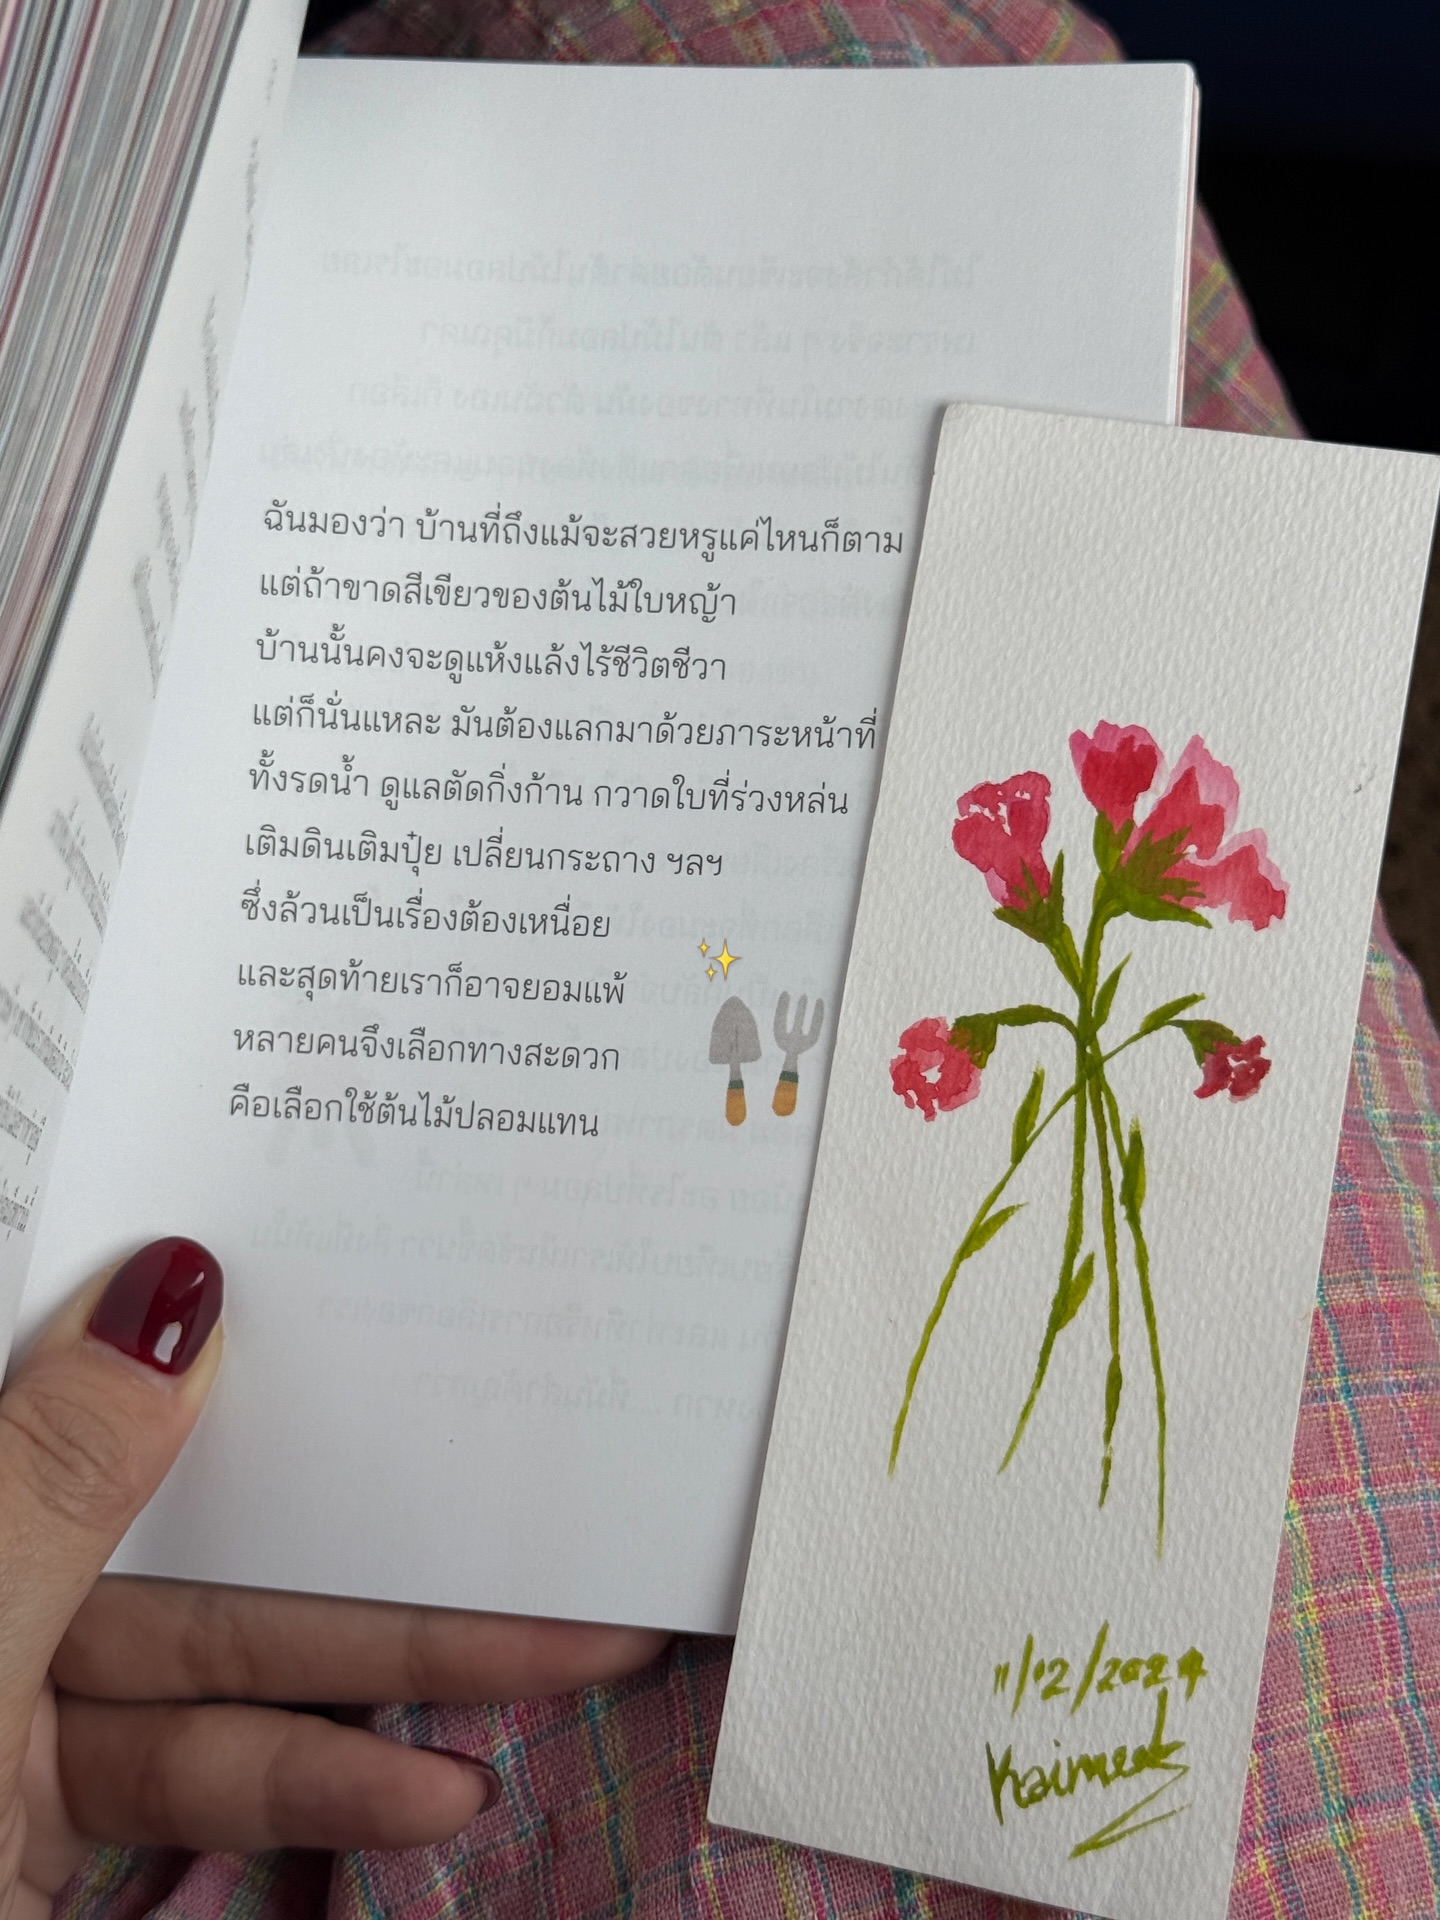 ฉันมองว่า บ้านที่ถึงแม้จะสวยหรูแค่ไหนก็ตาม
แต่ถ้าขาดสีเขียวของต้นไม้ใบหญ้า
บ้านนั้นคงจะดูแห้งแล้งไร้ชีวิตชีวา
แต่ก็นั่นแหละ มันต้องแลกมาด้วยภาระหน้าที่
ทั้งรดน้ำ ดูแลตัดกิ่งก้าน กวาดใบที่ร่วงหล่น
เติมดินเติมปุ๋ย เปลี่ยนกระถาง ฯลฯ
ซึ่งล้วนเป็นเรื่องต้องเหนื่อย
และสุดท้ายเราก็อาจยอมแพ้
หลายคนจึงเลือกทางสะดวก
คือเลือกใช้ต้นไม้ปลอมแทน
11/12/2024